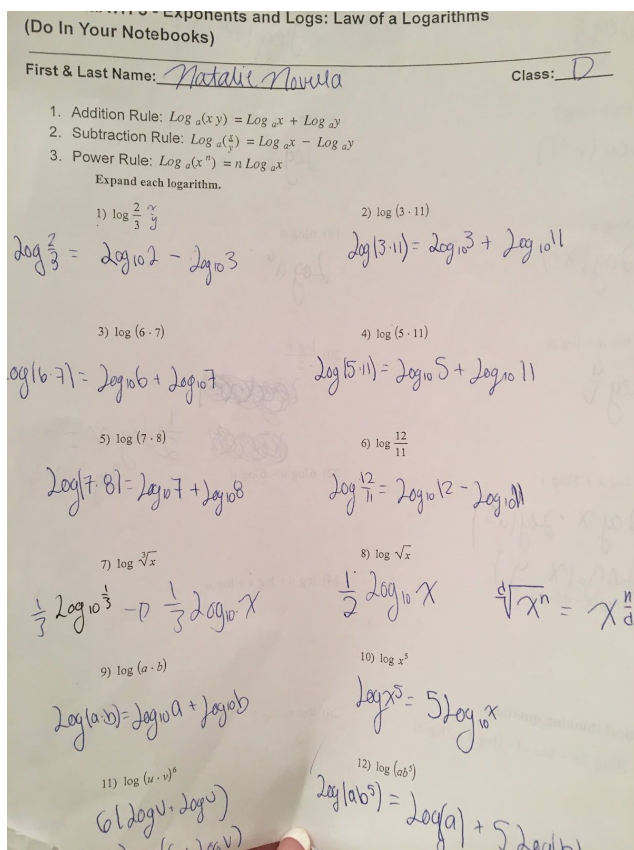 Exponents and Logs: Law of a Logarithms
(Do In Your Notebooks)
First & Last Name: Natalie Novella Class: D
1. Addition Rule: Log a(x y) = Log ax + Log ay
2. Subtraction Rule: Log a(x/y) = Log ax − Log ay
3. Power Rule: Log a(xⁿ) = n Log ax
Expand each logarithm.
1) log 2/3 x/y 2) log (3 · 11)
Log 2/3 = Log10 2 − Log10 3 Log(3·11) = Log10 3 + Log10 11
3) log (6 · 7) 4) log (5 · 11)
og(6·7) = Log10 6 + Log10 7 Log(5·11) = Log10 5 + Log10 11
5) log (7 · 8) 6) log 12/11
Log(7·8) = Log10 7 + Log10 8 Log 12/11 = Log10 12 − Log10 11
7) log ∛x 8) log √x
1/3 Log10 1/3 → 1/3 Log10 · x 1/2 Log10 x ᵈ√xⁿ = x n/d
9) log (a · b) 10) log x⁵
Log(a·b) = Log10 a + Log10 b Log x⁵ = 5 Log10 x
11) log (u · v)⁶ 12) log (ab⁵)
6(Log U + Log V) Log(ab⁵) = Log(a) + 5 Log(b)